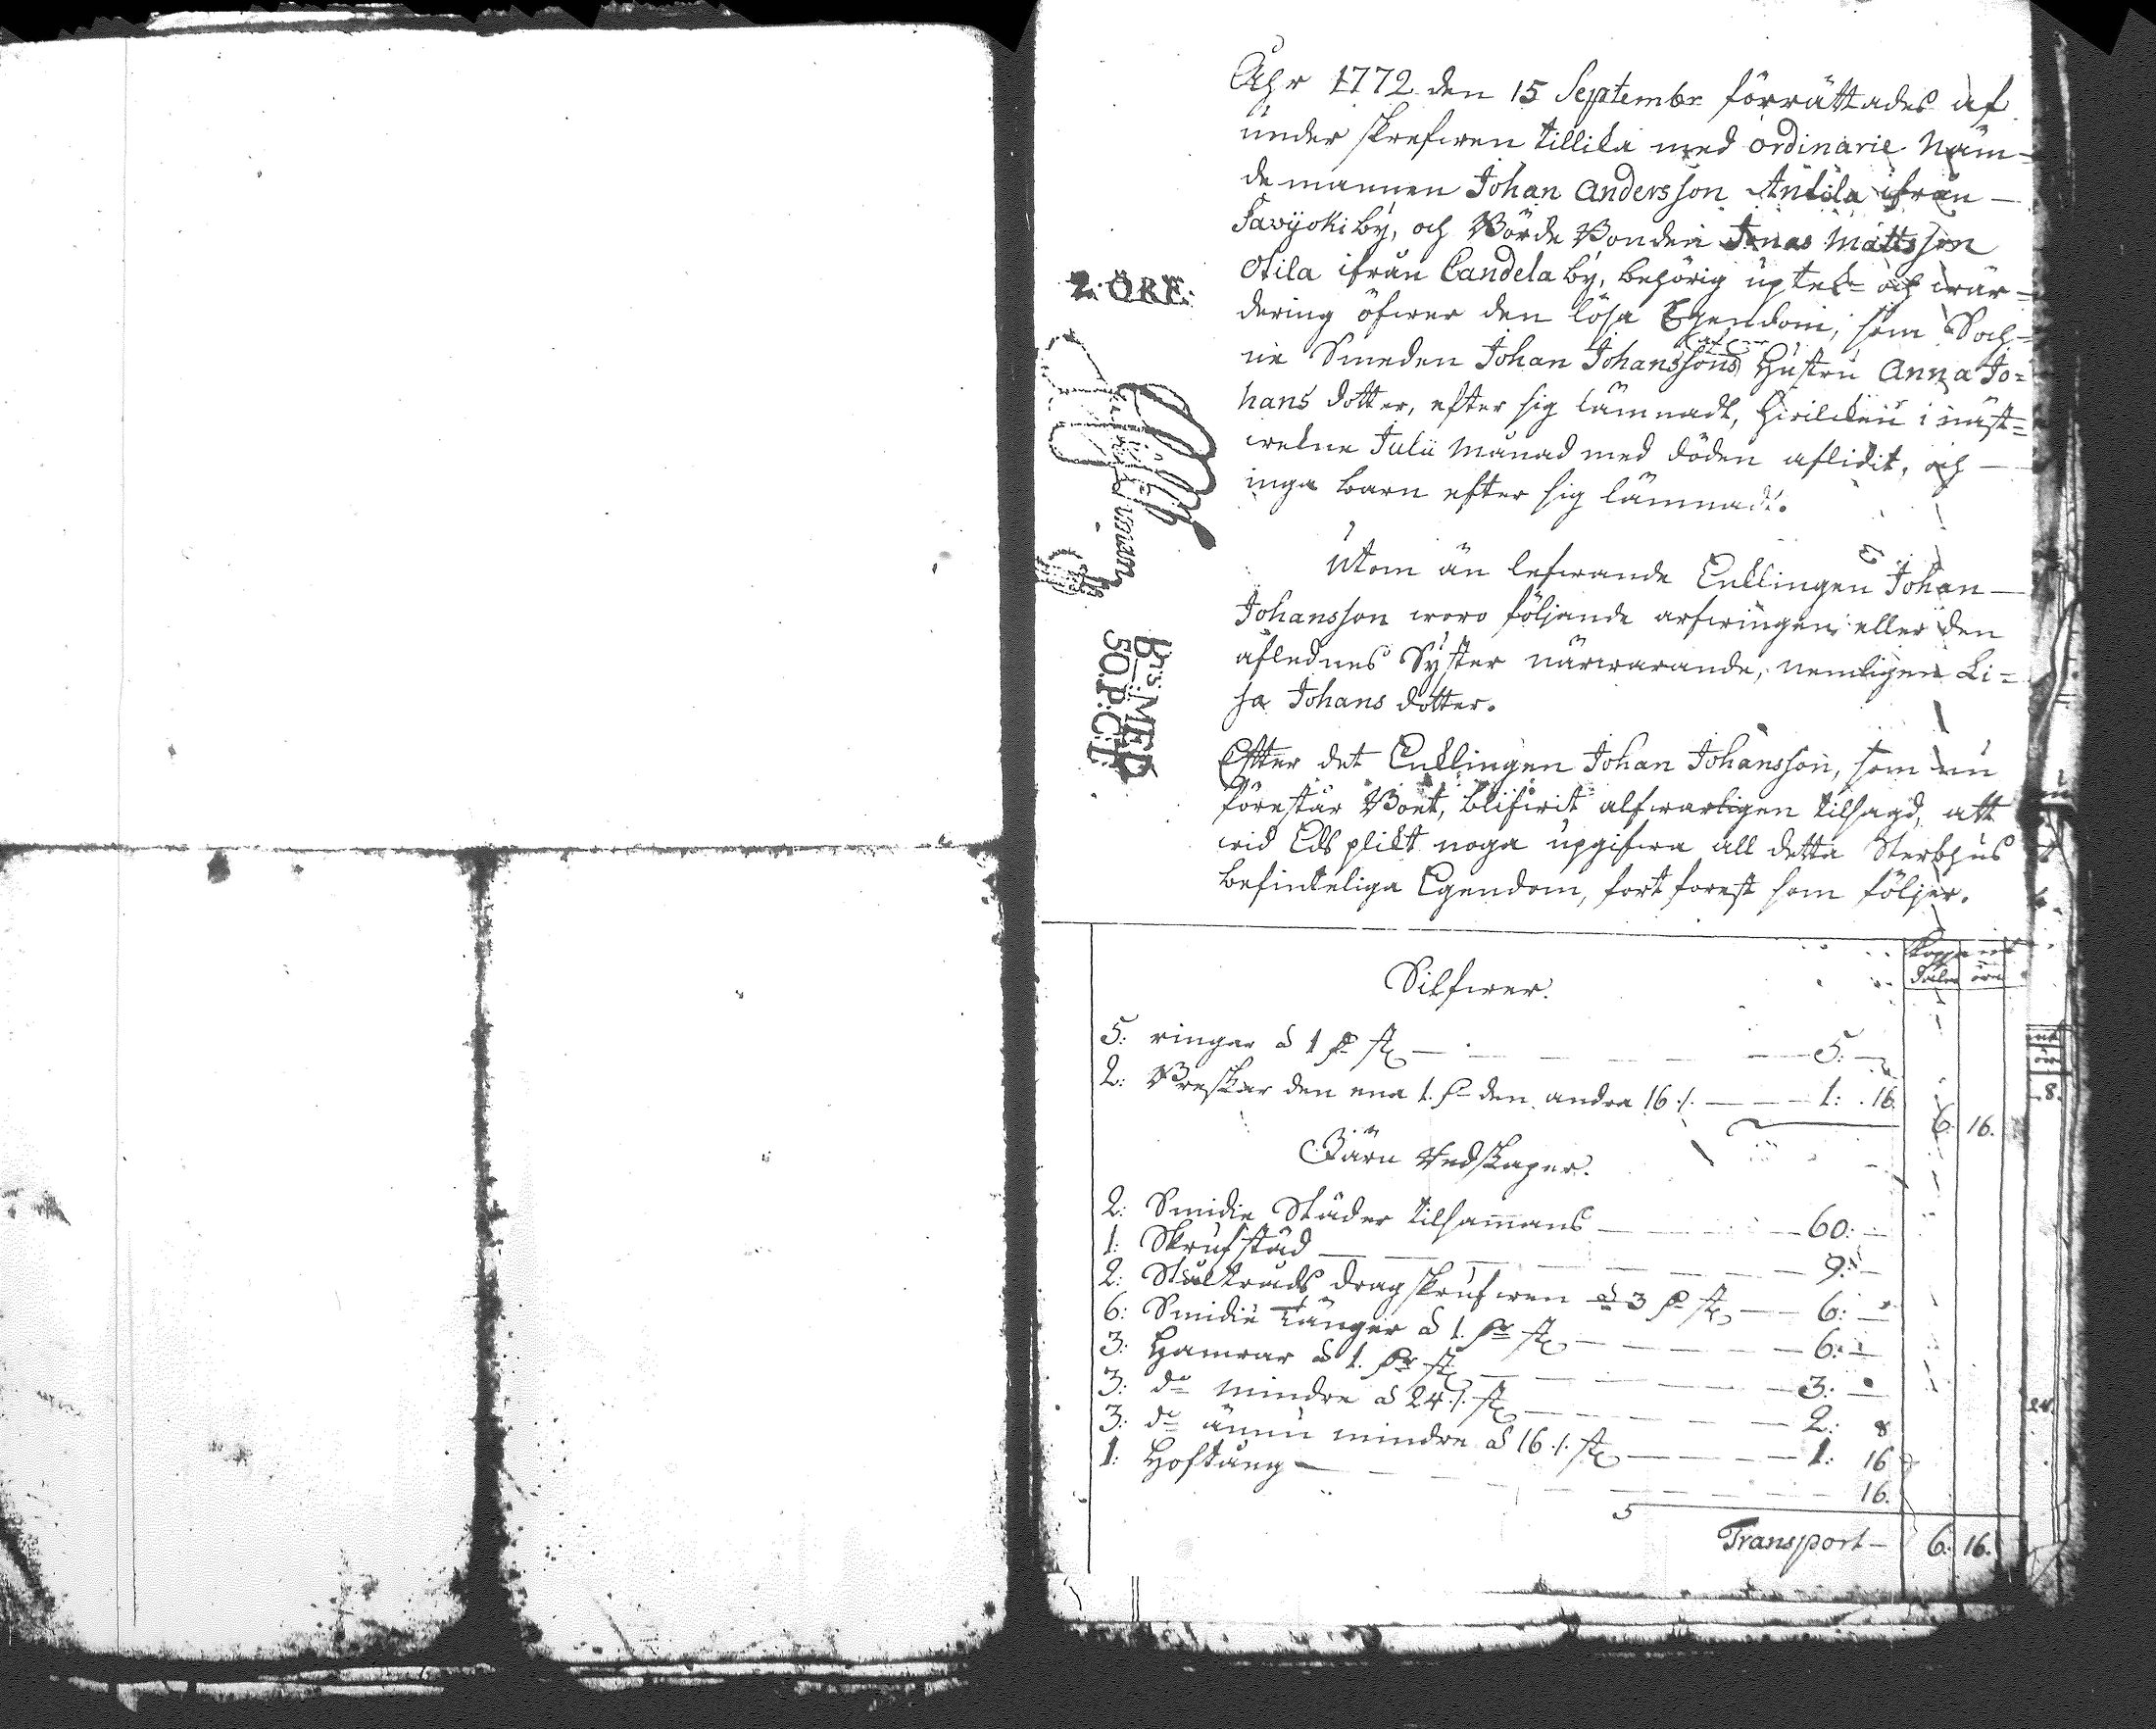 Åhr 1772 den 15 Septembr förrättades af
under skrefwen tillika med ordinarie Näm-
demannen Johan Andersson Antila ifrån
Savijoki by, och Börde Bonden Jonas Mattsson
Otila ifrån Candela by, behörig uptek- och wär-
dering öfwer den lösa Egendom, som Soch-
ne Smeden Johan Johanssons Hustru Anna Jo-
hans dotter, efter sig lämnadt, hwilcken i näst-
wekne Julii Månad med döden aflidit, och
inga barn efter sig lämnadt.
Utom än lefwande Encklingen Johan
Johansson woro följande arfwingen eller den
aflednes Syster närwarande, nemligen Li-
sa Johans dotter.
Efter det Encklingen Johan Johansson, som nu
förestår Boet, blifwit alfwarligen tilsagd, att
wid Eds plikt noga upgifwa all detta Sterbhus
befinteliga Egendom, fort forest som följer.
2. ÖRE.
Brs: MED
50. P: C:T:
Koppar mt
Daler öre
Silfwer.
5: ringar a 1 Dr st 5:
2: Breskar den ena 1. Dr den andra 16 /. 1: 16 6. 16.
Järn Redskaper.
2: Smidie Städer tilsammans 60:
1: Skrufstäd 9:
2: Ståltråds dragskrufwen a 3 Dr st 6:
6: Smidie Tänger a 1. Dr st 6:
3: Hamrar a 1. Dr st 3:
3: do mindre a 24 /. st 2: 8
3: do ännu mindre a 16 /. st 1: 16
1: Hoftång 16.
Transport 6: 16.